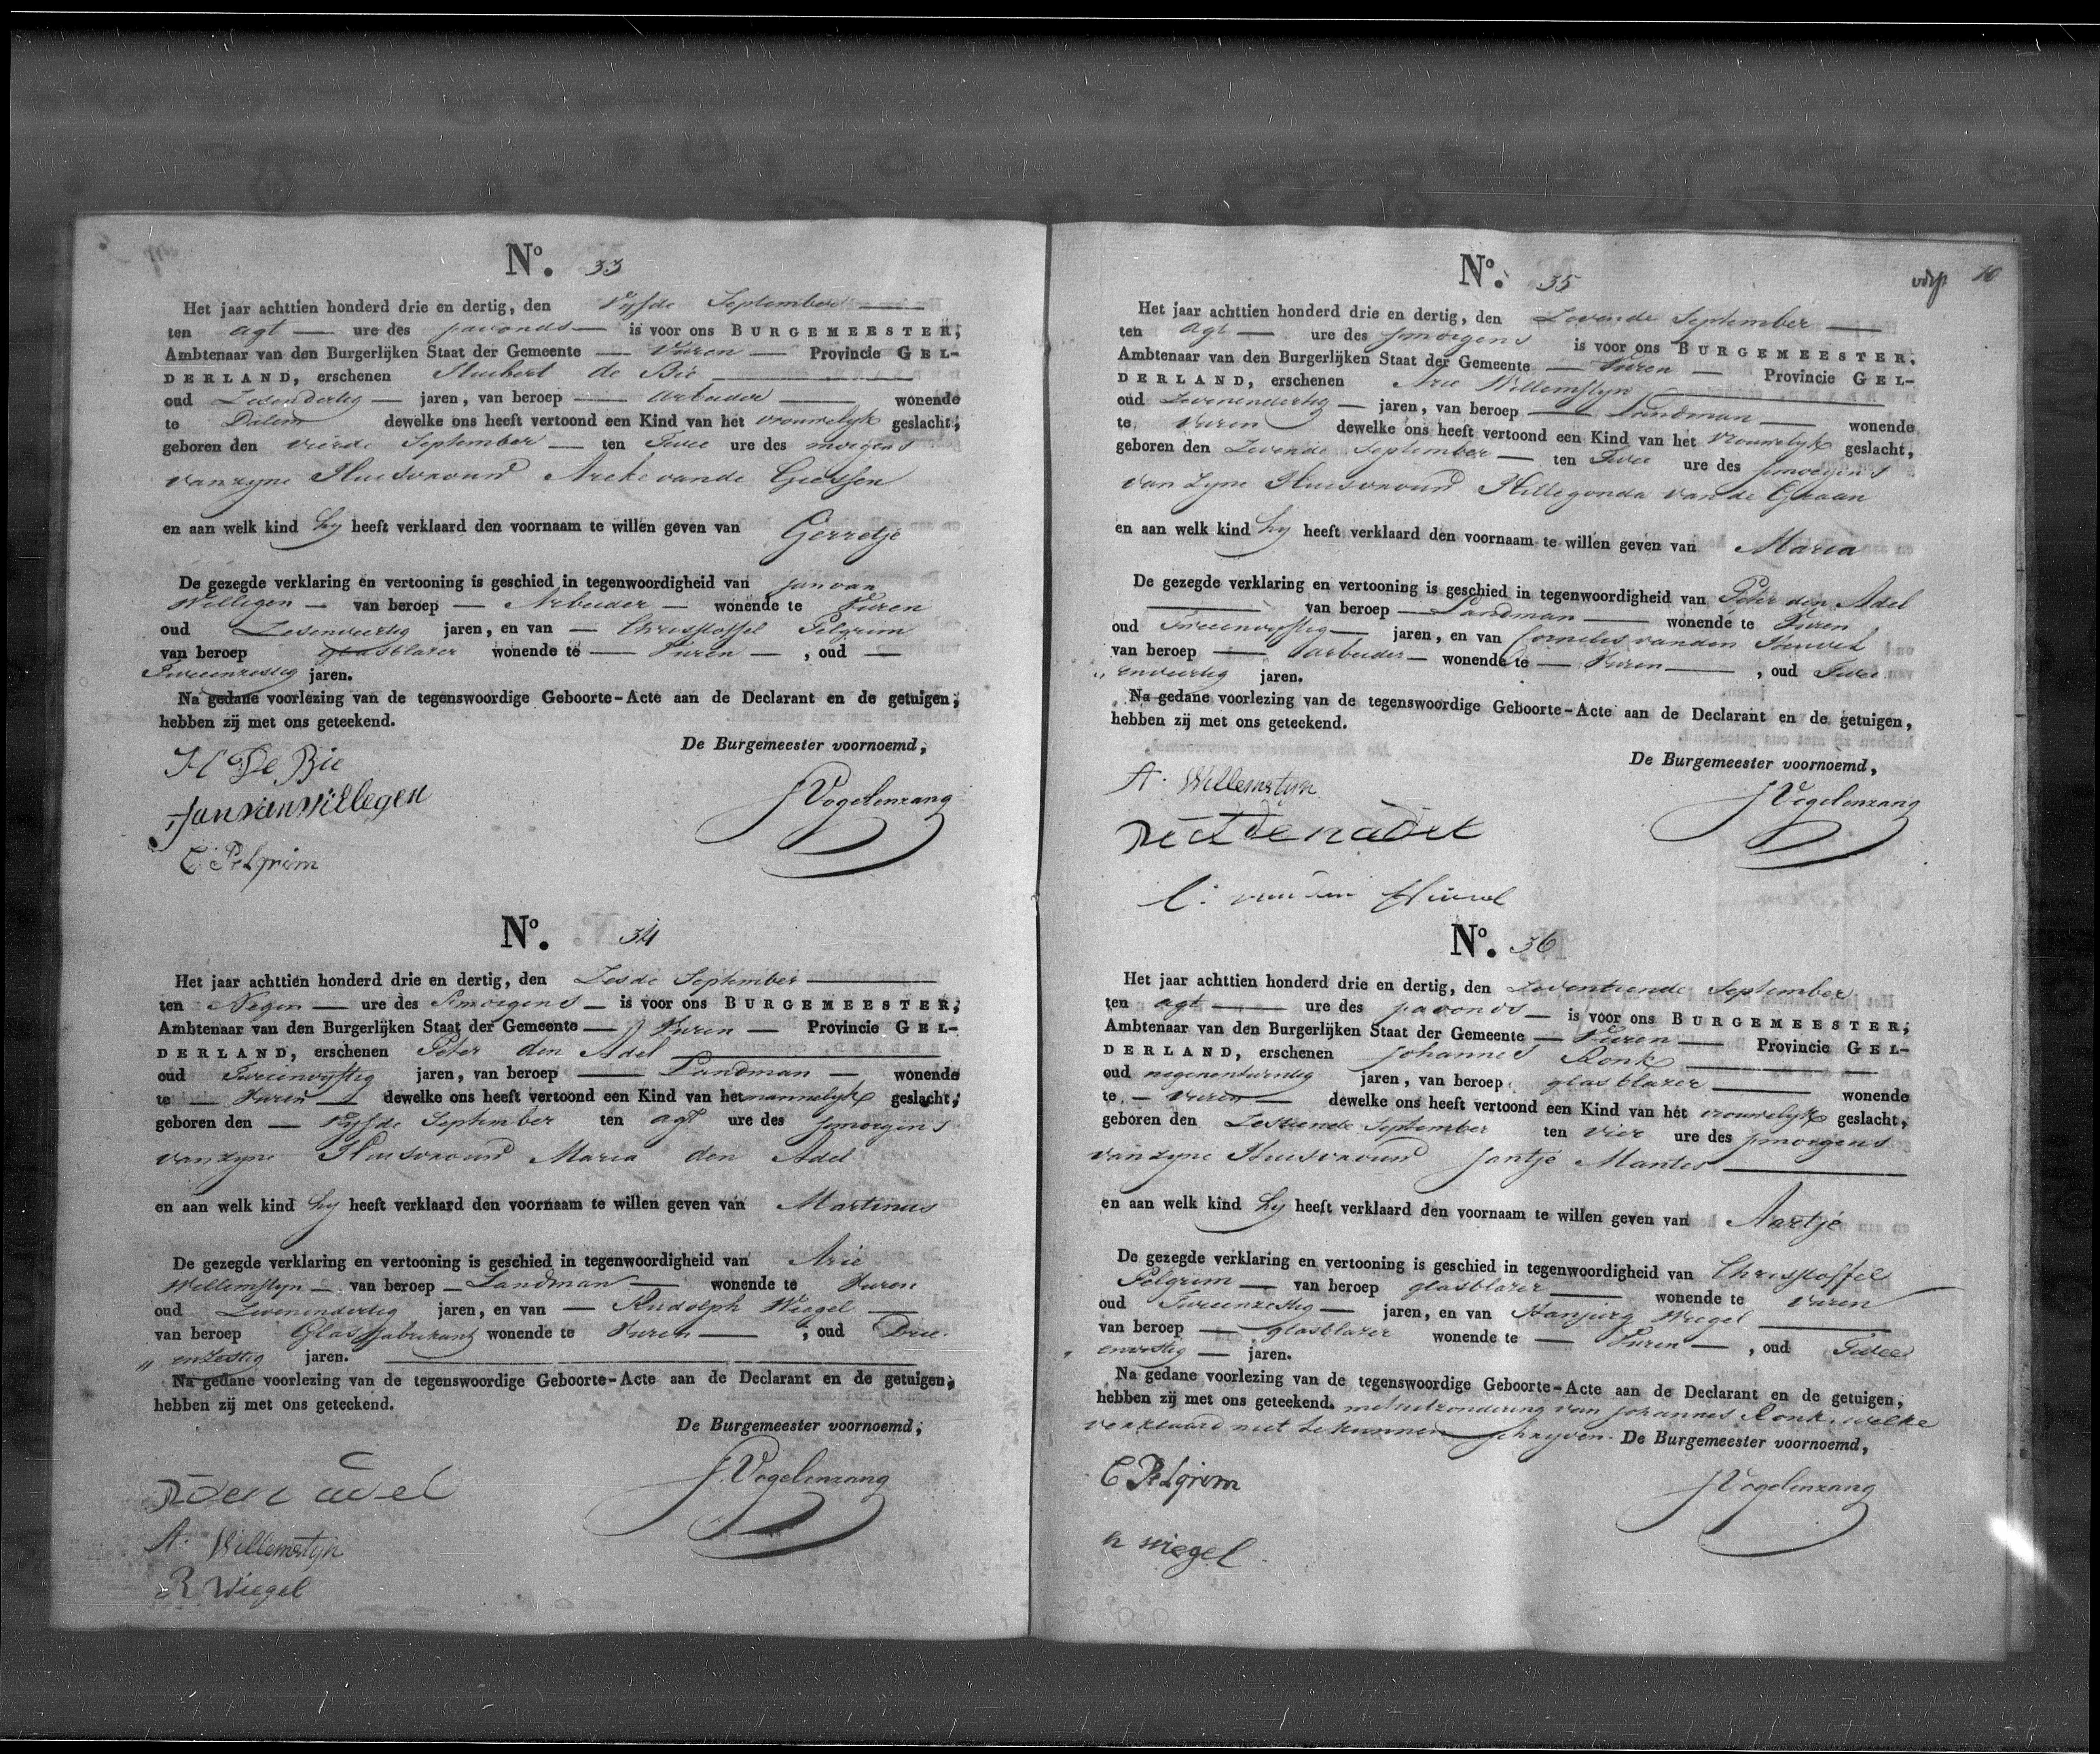 No. 33
Het jaar achttien honderd drie en dertig, den Vyfde September
ten agt ure des savonds is voor ons BURGEMEESTER,
Ambtenaar van den Burgerlijken Staat der Gemeente Vuren Provincie GEL-
DERLAND, erschenen Huibert de Bie
oud Zesendertig jaren, van beroep Arbeider wonende
te Dalem dewelke ons heeft vertoond een Kind van het vrouwelyk geslacht,
geboren den vierde September ten Twee ure des morgens
van zyne Huisvrouw Areke vande Giessen
en aan welk kind hy heeft verklaard den voornaam te willen geven van Gerretje
De gezegde verklaring en vertooning is geschied in tegenwoordigheid van Jan van
Willigen van beroep Arbeider wonende te Vuren
oud Zesenveertig jaren, en van Christoffel Pelgrim
van beroep glasblazer wonende te Vuren , oud
Tweeenzestig jaren.
Na gedane voorlezing van de tegenswoordige Geboorte-Acte aan de Declarant en de getuigen,
hebben zij met ons geteekend.
De Burgemeester voornoemd,
H De Bie
Jan van Willegen
J Vogelenzang
C Pelgrim
No. 34
Het jaar achttien honderd drie en dertig, den Zesde September
ten Negen ure des Smorgens is voor ons BURGEMEESTER,
Ambtenaar van den Burgerlijken Staat der Gemeente Vuren Provincie GEL-
DERLAND, erschenen Peter den Adel
oud Tweeenvyftig jaren, van beroep Landman wonende
te Vuren dewelke ons heeft vertoond een Kind van het mannelyk geslacht,
geboren den Vyfde September ten agt ure des smorgens
van zyne Huisvrouw Maria den Adel
en aan welk kind hy heeft verklaard den voornaam te willen geven van Martinus
De gezegde verklaring en vertooning is geschied in tegenwoordigheid van Arie
Willemstyn van beroep Landman wonende te Vuren
oud Zevenendertig jaren, en van Rudolph Wiegel
van beroep Glasfabrikant wonende te Vuren , oud Drie
" enzestig jaren.
Na gedane voorlezing van de tegenswoordige Geboorte-Acte aan de Declarant en de getuigen,
hebben zij met ons geteekend.
De Burgemeester voornoemd,
P den adel
J. Vogelenzang
A. Willemstyn
R Wiegel
vdsp 10
No. 35
Het jaar achttien honderd drie en dertig, den Zevende September
ten Agt ure des smorgens is voor ons BURGEMEESTER,
Ambtenaar van den Burgerlijken Staat der Gemeente Vuren Provincie GEL-
DERLAND, erschenen Arie Willemstyn
oud Zevenendertig jaren, van beroep Landman wonende
te Vuren dewelke ons heeft vertoond een Kind van het vrouwelyk geslacht,
geboren den Zevende September ten Twee ure des smorgens
van zyne Huisvrouw Hillegonda van de Graan
en aan welk kind hy heeft verklaard den voornaam te willen geven van Maria
De gezegde verklaring en vertooning is geschied in tegenwoordigheid van Peter den Adel
van beroep Landman wonende te Vuren
oud Tweeenvyftig jaren, en van Cornelis vanden Heuvel
van beroep arbeider wonende te Vuren , oud Twee
" enveertig jaren.
Na gedane voorlezing van de tegenswoordige Geboorte-Acte aan de Declarant en de getuigen,
hebben zij met ons geteekend.
De Burgemeester voornoemd,
A. Willemstyn
J Vogelenzang
den adel
C: van den Heuvel
No. 36
Het jaar achttien honderd drie en dertig, den Zeventiende September
ten agt ure des savonds is voor ons BURGEMEESTER,
Ambtenaar van den Burgerlijken Staat der Gemeente Vuren Provincie GEL-
DERLAND, erschenen Johannes Ronk
oud negenentwintig jaren, van beroep glasblazer wonende
te Vuren dewelke ons heeft vertoond een Kind van het vrouwelyk geslacht,
geboren den Zestiende September ten vier ure des smorgens
van zyne Huisvrouw Jantje Mantes
en aan welk kind hy heeft verklaard den voornaam te willen geven van Aartje
De gezegde verklaring en vertooning is geschied in tegenwoordigheid van Christoffel
Pelgrim van beroep glasblazer wonende te Vuren
oud Tweeenzestig jaren, en van Hanjurg Wiegel
van beroep glasblazer wonende te Vuren , oud Twee
jaren.
Na gedane voorlezing van de tegenswoordige Geboorte-Acte aan de Declarant en de getuigen,
hebben zij met ons geteekend. met uitzondering van Johannes Ronk welke
verklaard niet te kunnen schryven. De Burgemeester voornoemd,
C Pelgrim
J Vogelenzang
h wiegel